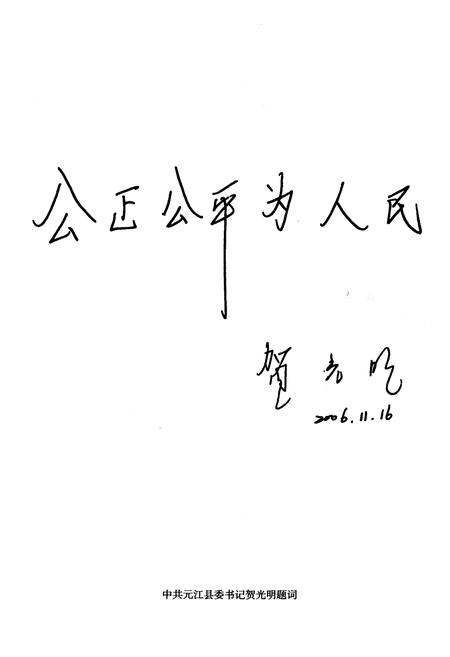 公正公平为人民
贺光明
2006.11.16
中共元江县委书记贺光明题词